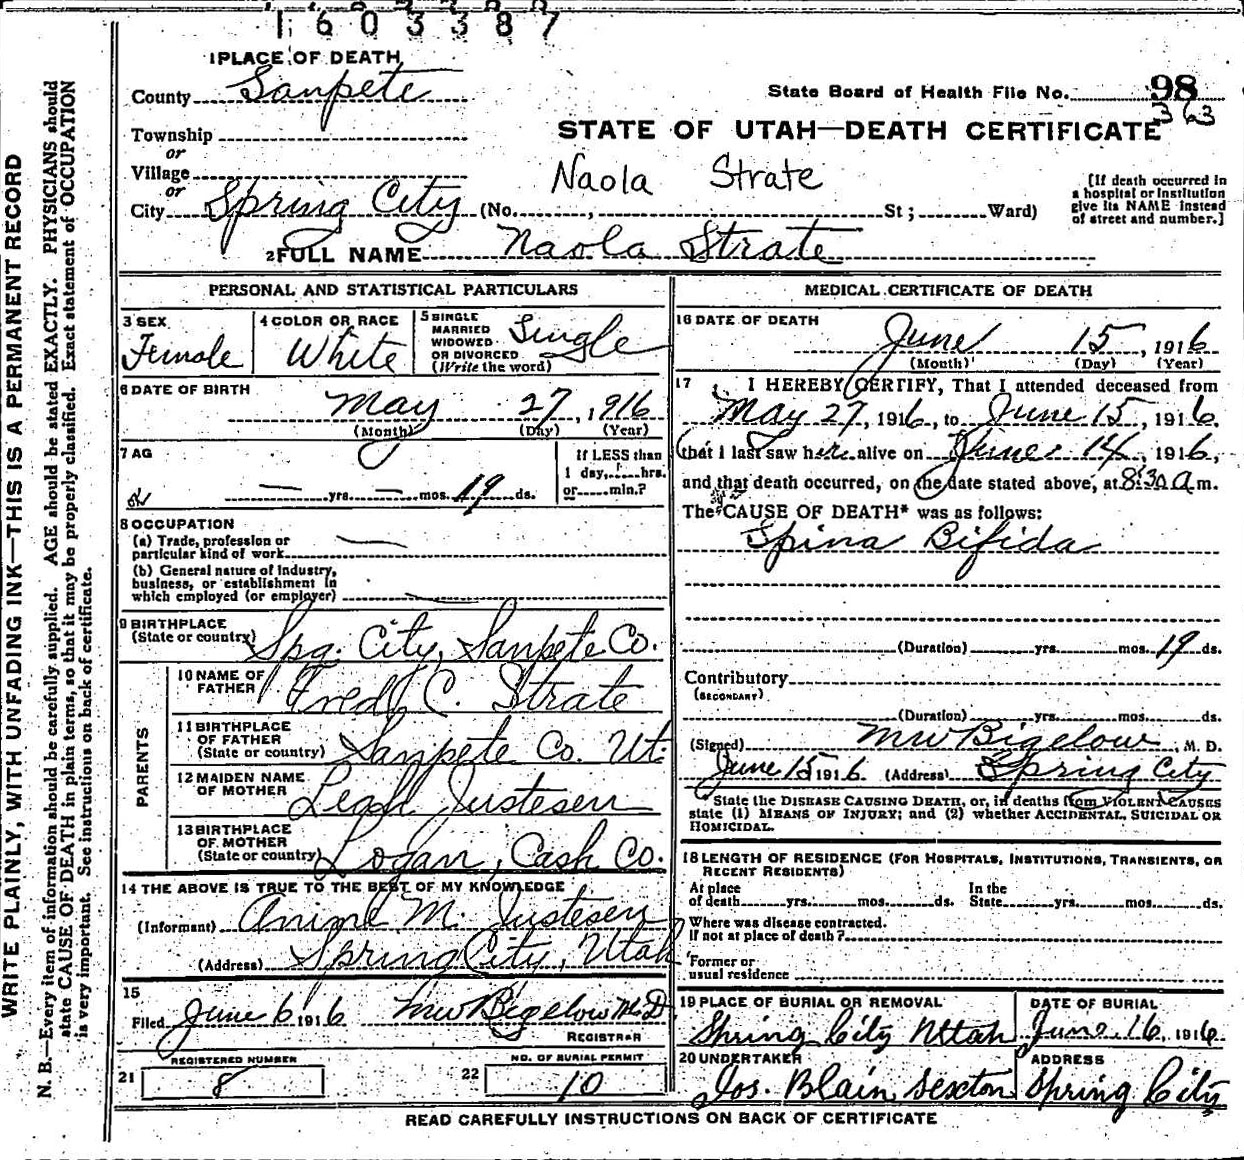 1603387
1 PLACE OF DEATH
County Sanpete
State Board of Health File No. 98
363
Township
or
STATE OF UTAH—DEATH CERTIFICATE
Village
or
Naola Strate
[If death occurred in
a hospital or institution
give its NAME instead
of street and number.]
City Spring City (No. , St; Ward)
2 FULL NAME Naola Strate
PERSONAL AND STATISTICAL PARTICULARS
3 SEX
Female
4 COLOR OR RACE
White
5 SINGLE
MARRIED
WIDOWED
OR DIVORCED
(Write the word)
Single
6 DATE OF BIRTH
May 27, 1916
(Month) (Day) (Year)
7 AG
— yrs. — mos. 19 ds.
If LESS than
1 day, hrs.
or min.?
8 OCCUPATION
(a) Trade, profession or
particular kind of work —
(b) General nature of industry,
business, or establishment in
which employed (or employer) —
9 BIRTHPLACE
(State or country) Spg. City, Sanpete Co.
PARENTS
10 NAME OF
FATHER Fred C. Strate
11 BIRTHPLACE
OF FATHER
(State or country) Sanpete Co. Ut.
12 MAIDEN NAME
OF MOTHER Leah Justesen
13 BIRTHPLACE
OF MOTHER
(State or country) Logan, Cash Co.
14 THE ABOVE IS TRUE TO THE BEST OF MY KNOWLEDGE
(Informant) M. Justesen
(Address) Spring City, Utah
15
Filed June 6 1916 MW Bigelow M.D.
REGISTRAR
REGISTERED NUMBER
21 8
NO. OF BURIAL PERMIT
22 10
MEDICAL CERTIFICATE OF DEATH
16 DATE OF DEATH
June 15, 1916
(Month) (Day) (Year)
17 I HEREBY CERTIFY, That I attended deceased from
May 27, 1916, to June 15, 1916,
that I last saw her alive on June 14, 1916,
and that death occurred, on the date stated above, at 8:30 a.m.
The CAUSE OF DEATH* was as follows:
Spina Bifida
(Duration) yrs. mos. 19 ds.
Contributory
(SECONDARY)
(Duration) yrs. mos. ds.
(Signed) MW Bigelow, M. D.
June 15 1916 (Address) Spring City
*State the DISEASE CAUSING DEATH, or, in deaths from VIOLENT CAUSES
state (1) MEANS OF INJURY; and (2) whether ACCIDENTAL, SUICIDAL OR
HOMICIDAL.
18 LENGTH OF RESIDENCE (FOR HOSPITALS, INSTITUTIONS, TRANSIENTS, OR
RECENT RESIDENTS)
At place
of death yrs. mos. ds.
In the
State yrs. mos. ds.
Where was disease contracted.
If not at place of death?
Former or
usual residence
19 PLACE OF BURIAL OR REMOVAL
Spring City Uttah
DATE OF BURIAL
June 16, 1916
20 UNDERTAKER
Jos. Blain Sexton
ADDRESS
Spring City
READ CAREFULLY INSTRUCTIONS ON BACK OF CERTIFICATE
WRITE PLAINLY, WITH UNFADING INK—THIS IS A PERMANENT RECORD
N. B.—Every item of information should be carefully supplied. AGE should be stated EXACTLY. PHYSICIANS should
state CAUSE OF DEATH in plain terms, so that it may be properly classified. Exact statement of OCCUPATION
is very important. See instructions on back of certificate.